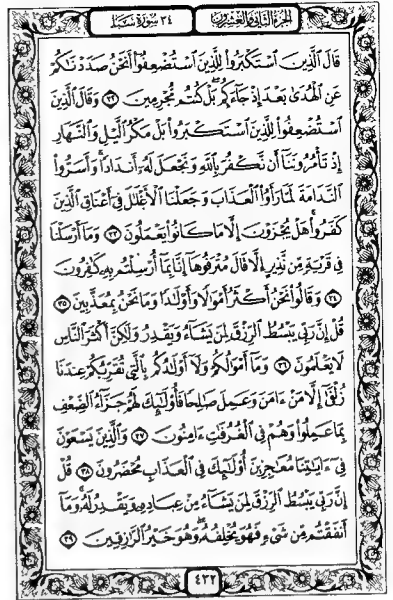 الجزء الثاني والعشرون
٣٤ سورة سبإ
قَالَ ٱلَّذِينَ ٱسْتَكْبَرُوا۟ لِلَّذِينَ ٱسْتُضْعِفُوٓا۟ أَنَحْنُ صَدَدْنَـٰكُمْ
عَنِ ٱلْهُدَىٰ بَعْدَ إِذْ جَآءَكُم ۖ بَلْ كُنتُم مُّجْرِمِينَ ٣٢ وَقَالَ ٱلَّذِينَ
ٱسْتُضْعِفُوا۟ لِلَّذِينَ ٱسْتَكْبَرُوا۟ بَلْ مَكْرُ ٱلَّيْلِ وَٱلنَّهَارِ
إِذْ تَأْمُرُونَنَآ أَن نَّكْفُرَ بِٱللَّهِ وَنَجْعَلَ لَهُۥٓ أَندَادًا ۚ وَأَسَرُّوا۟
ٱلنَّدَامَةَ لَمَّا رَأَوُا۟ ٱلْعَذَابَ وَجَعَلْنَا ٱلْأَغْلَـٰلَ فِىٓ أَعْنَاقِ ٱلَّذِينَ
كَفَرُوا۟ ۚ هَلْ يُجْزَوْنَ إِلَّا مَا كَانُوا۟ يَعْمَلُونَ ٣٣ وَمَآ أَرْسَلْنَا
فِى قَرْيَةٍ مِّن نَّذِيرٍ إِلَّا قَالَ مُتْرَفُوهَآ إِنَّا بِمَآ أُرْسِلْتُم بِهِۦ كَـٰفِرُونَ
٣٤ وَقَالُوا۟ نَحْنُ أَكْثَرُ أَمْوَٰلًا وَأَوْلَـٰدًا وَمَا نَحْنُ بِمُعَذَّبِينَ ٣٥
قُلْ إِنَّ رَبِّى يَبْسُطُ ٱلرِّزْقَ لِمَن يَشَآءُ وَيَقْدِرُ وَلَـٰكِنَّ أَكْثَرَ ٱلنَّاسِ
لَا يَعْلَمُونَ ٣٦ وَمَآ أَمْوَٰلُكُمْ وَلَآ أَوْلَـٰدُكُم بِٱلَّتِى تُقَرِّبُكُمْ عِندَنَا
زُلْفَىٰٓ إِلَّا مَنْ ءَامَنَ وَعَمِلَ صَـٰلِحًا فَأُو۟لَـٰٓئِكَ لَهُمْ جَزَآءُ ٱلضِّعْفِ
بِمَا عَمِلُوا۟ وَهُمْ فِى ٱلْغُرُفَـٰتِ ءَامِنُونَ ٣٧ وَٱلَّذِينَ يَسْعَوْنَ
فِىٓ ءَايَـٰتِنَا مُعَـٰجِزِينَ أُو۟لَـٰٓئِكَ فِى ٱلْعَذَابِ مُحْضَرُونَ ٣٨ قُلْ
إِنَّ رَبِّى يَبْسُطُ ٱلرِّزْقَ لِمَن يَشَآءُ مِنْ عِبَادِهِۦ وَيَقْدِرُ لَهُۥ ۚ وَمَآ
أَنفَقْتُم مِّن شَىْءٍ فَهُوَ يُخْلِفُهُۥ ۖ وَهُوَ خَيْرُ ٱلرَّٰزِقِينَ ٣٩
٤٣٢